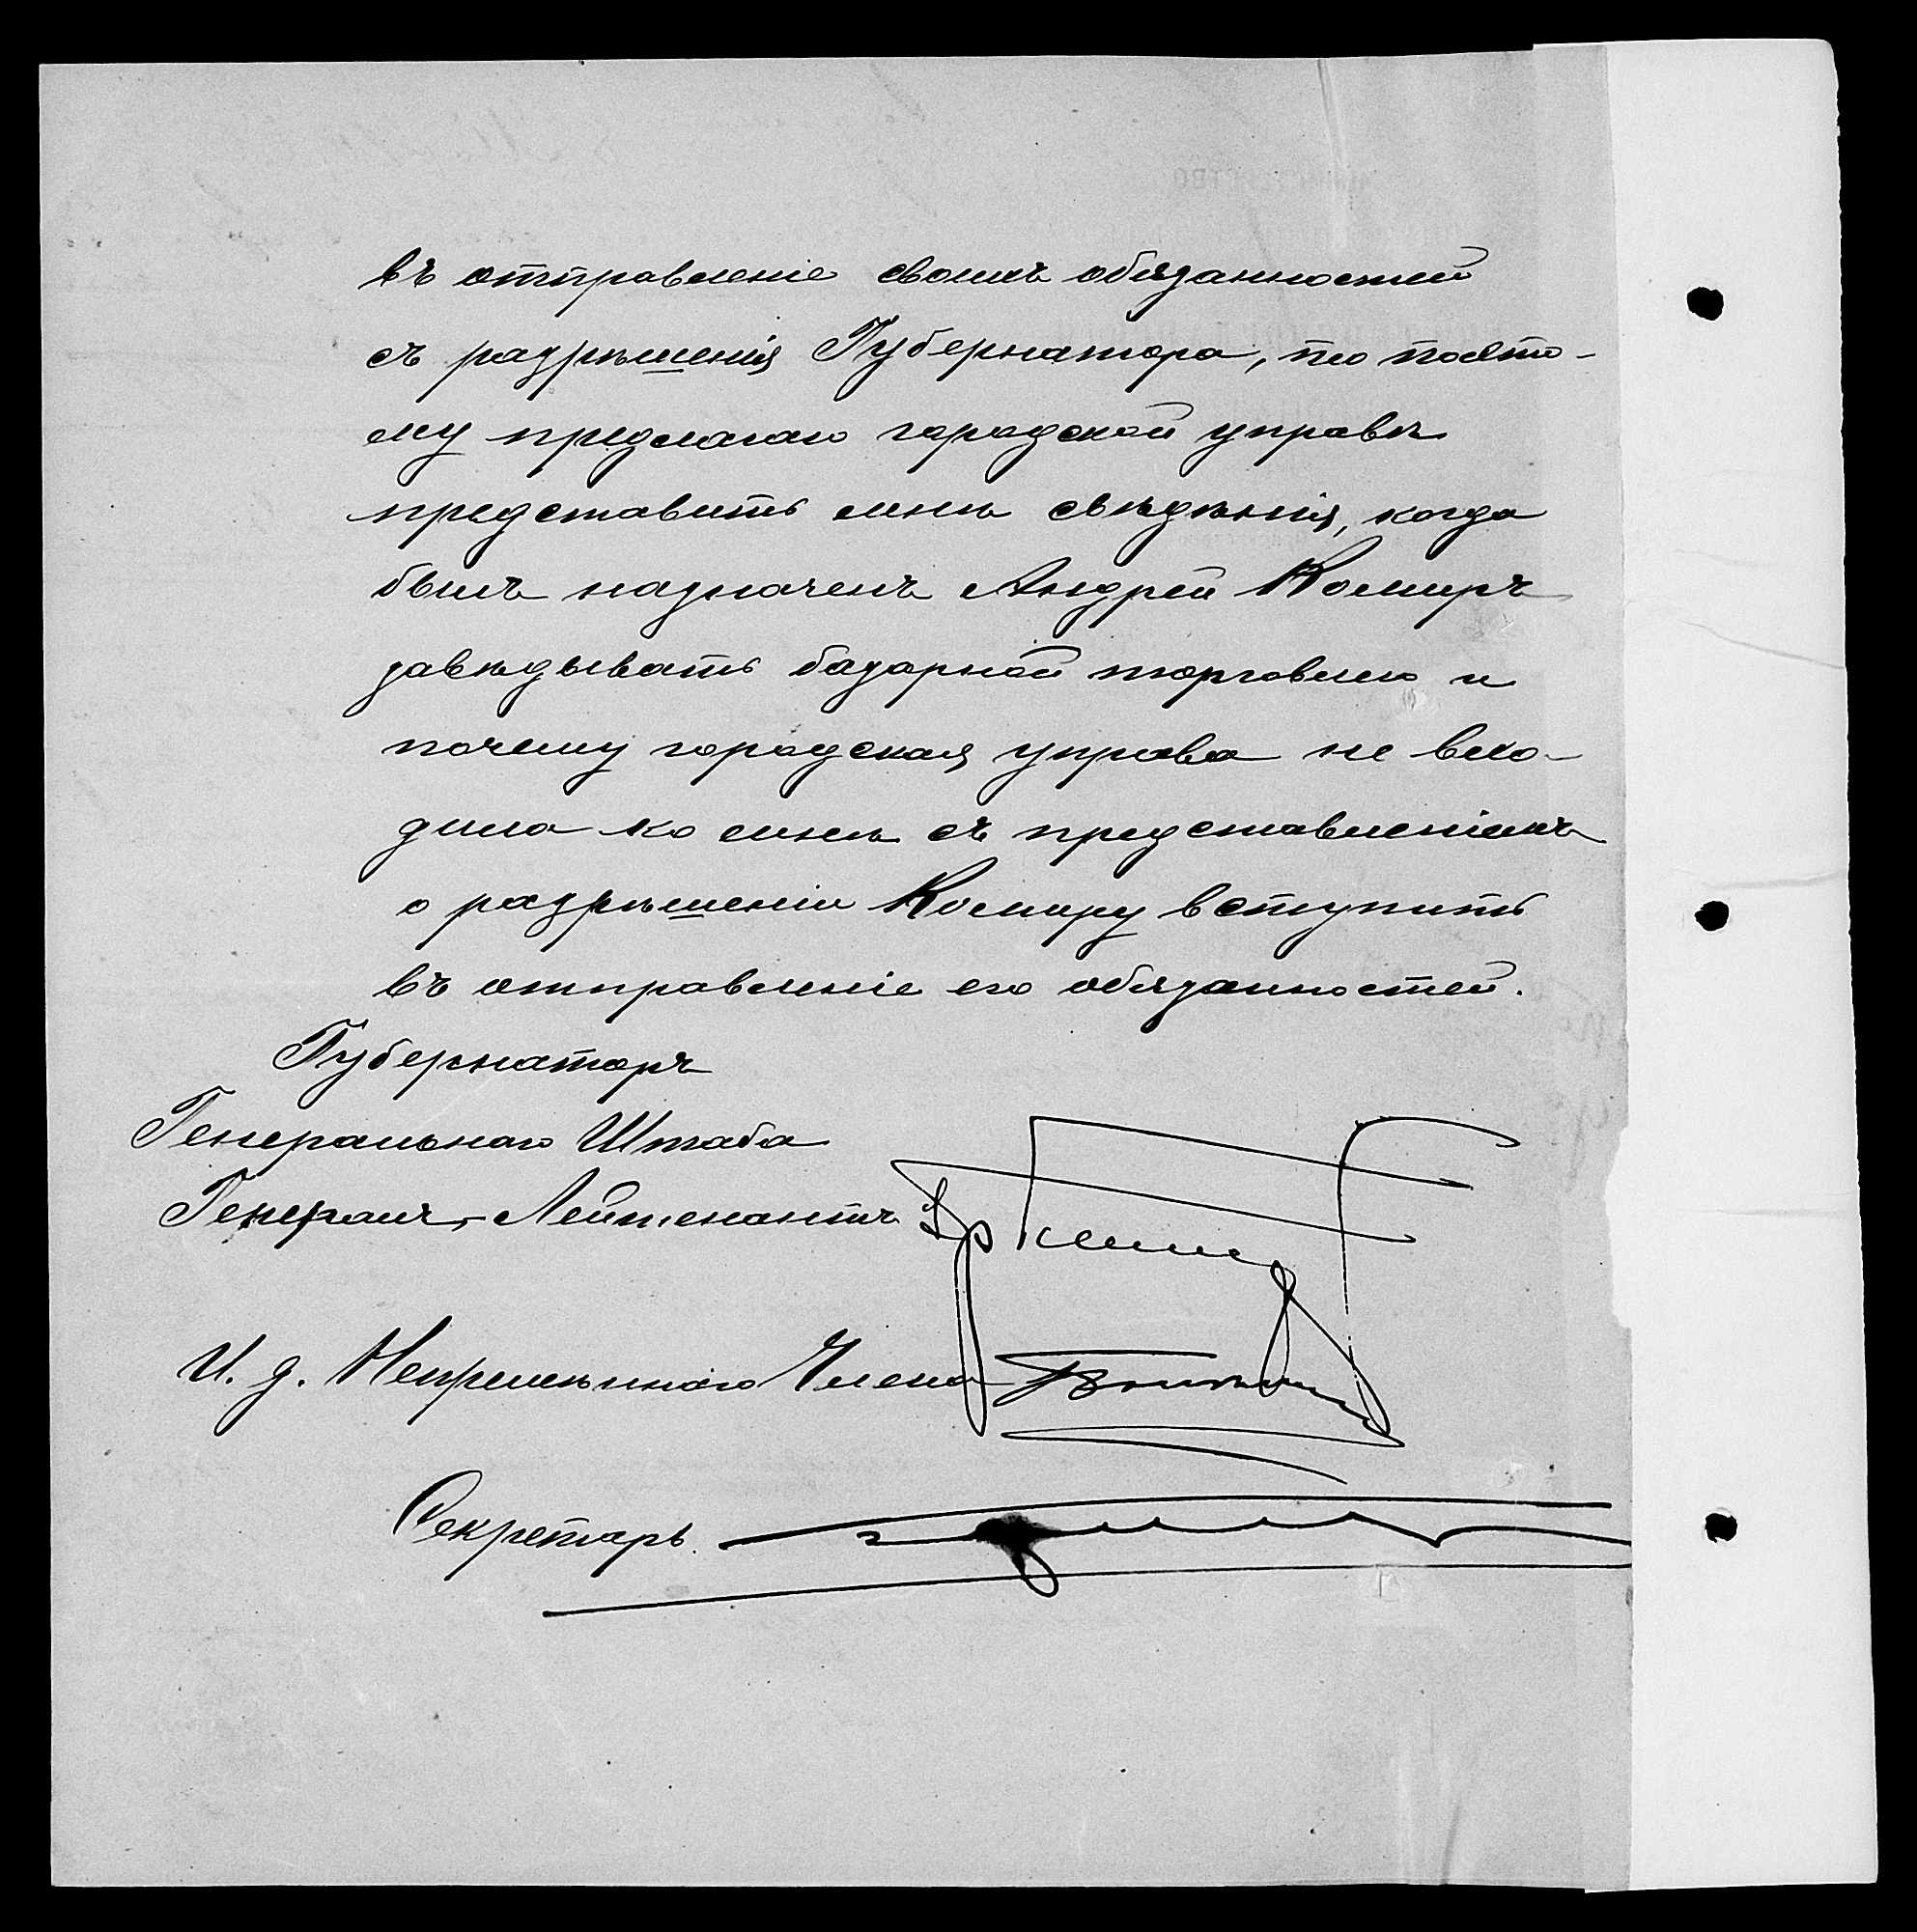 въ отправленіе своихъ обязанностей
съ разрѣшенія Губернатора, то поэто-
му предлагаю городской управѣ
представить мнѣ свѣдѣнія, когда
былъ назначенъ Андрей Комиръ
завѣдывать базарной торговлею и
почему городская управа не вхо-
дила ко мнѣ съ представленіемъ
о разрѣшеніи Комиру вступить
въ отправленіе его обязанностей.
Губернаторъ
Генеральнаго Штаба
Генералъ-Лейтенантъ
И. д. Непремѣннаго Члена
Секретарь